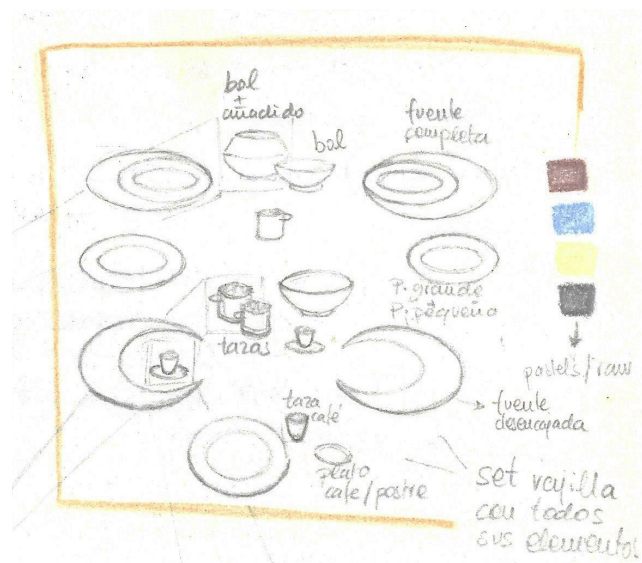 bol
+
añadido
bol
fuente
completa
P. grande
P. pequeño
tazas
pastels/raw
taza
café
fuente
desencajada
plato
cafe/postre
set vajilla
con todos
sus elementos